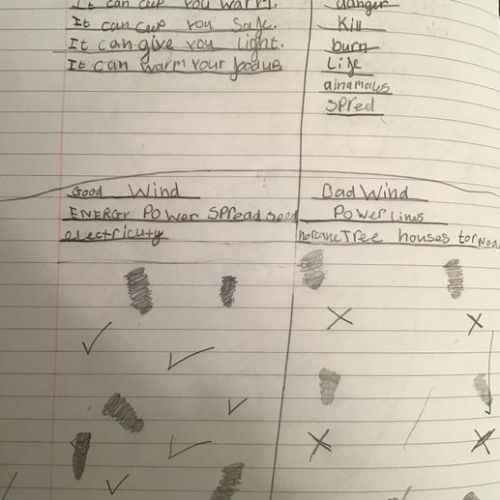 It can ceep you warm.
It can ceep you Safe.
It can give you light.
It can warm your
danger
Kill
burn
Life
ainamaus
Spred
Good Wind
ENERGY POWER SPREAD Seed
electricuty
Bad Wind
Power Lines
Tree houses